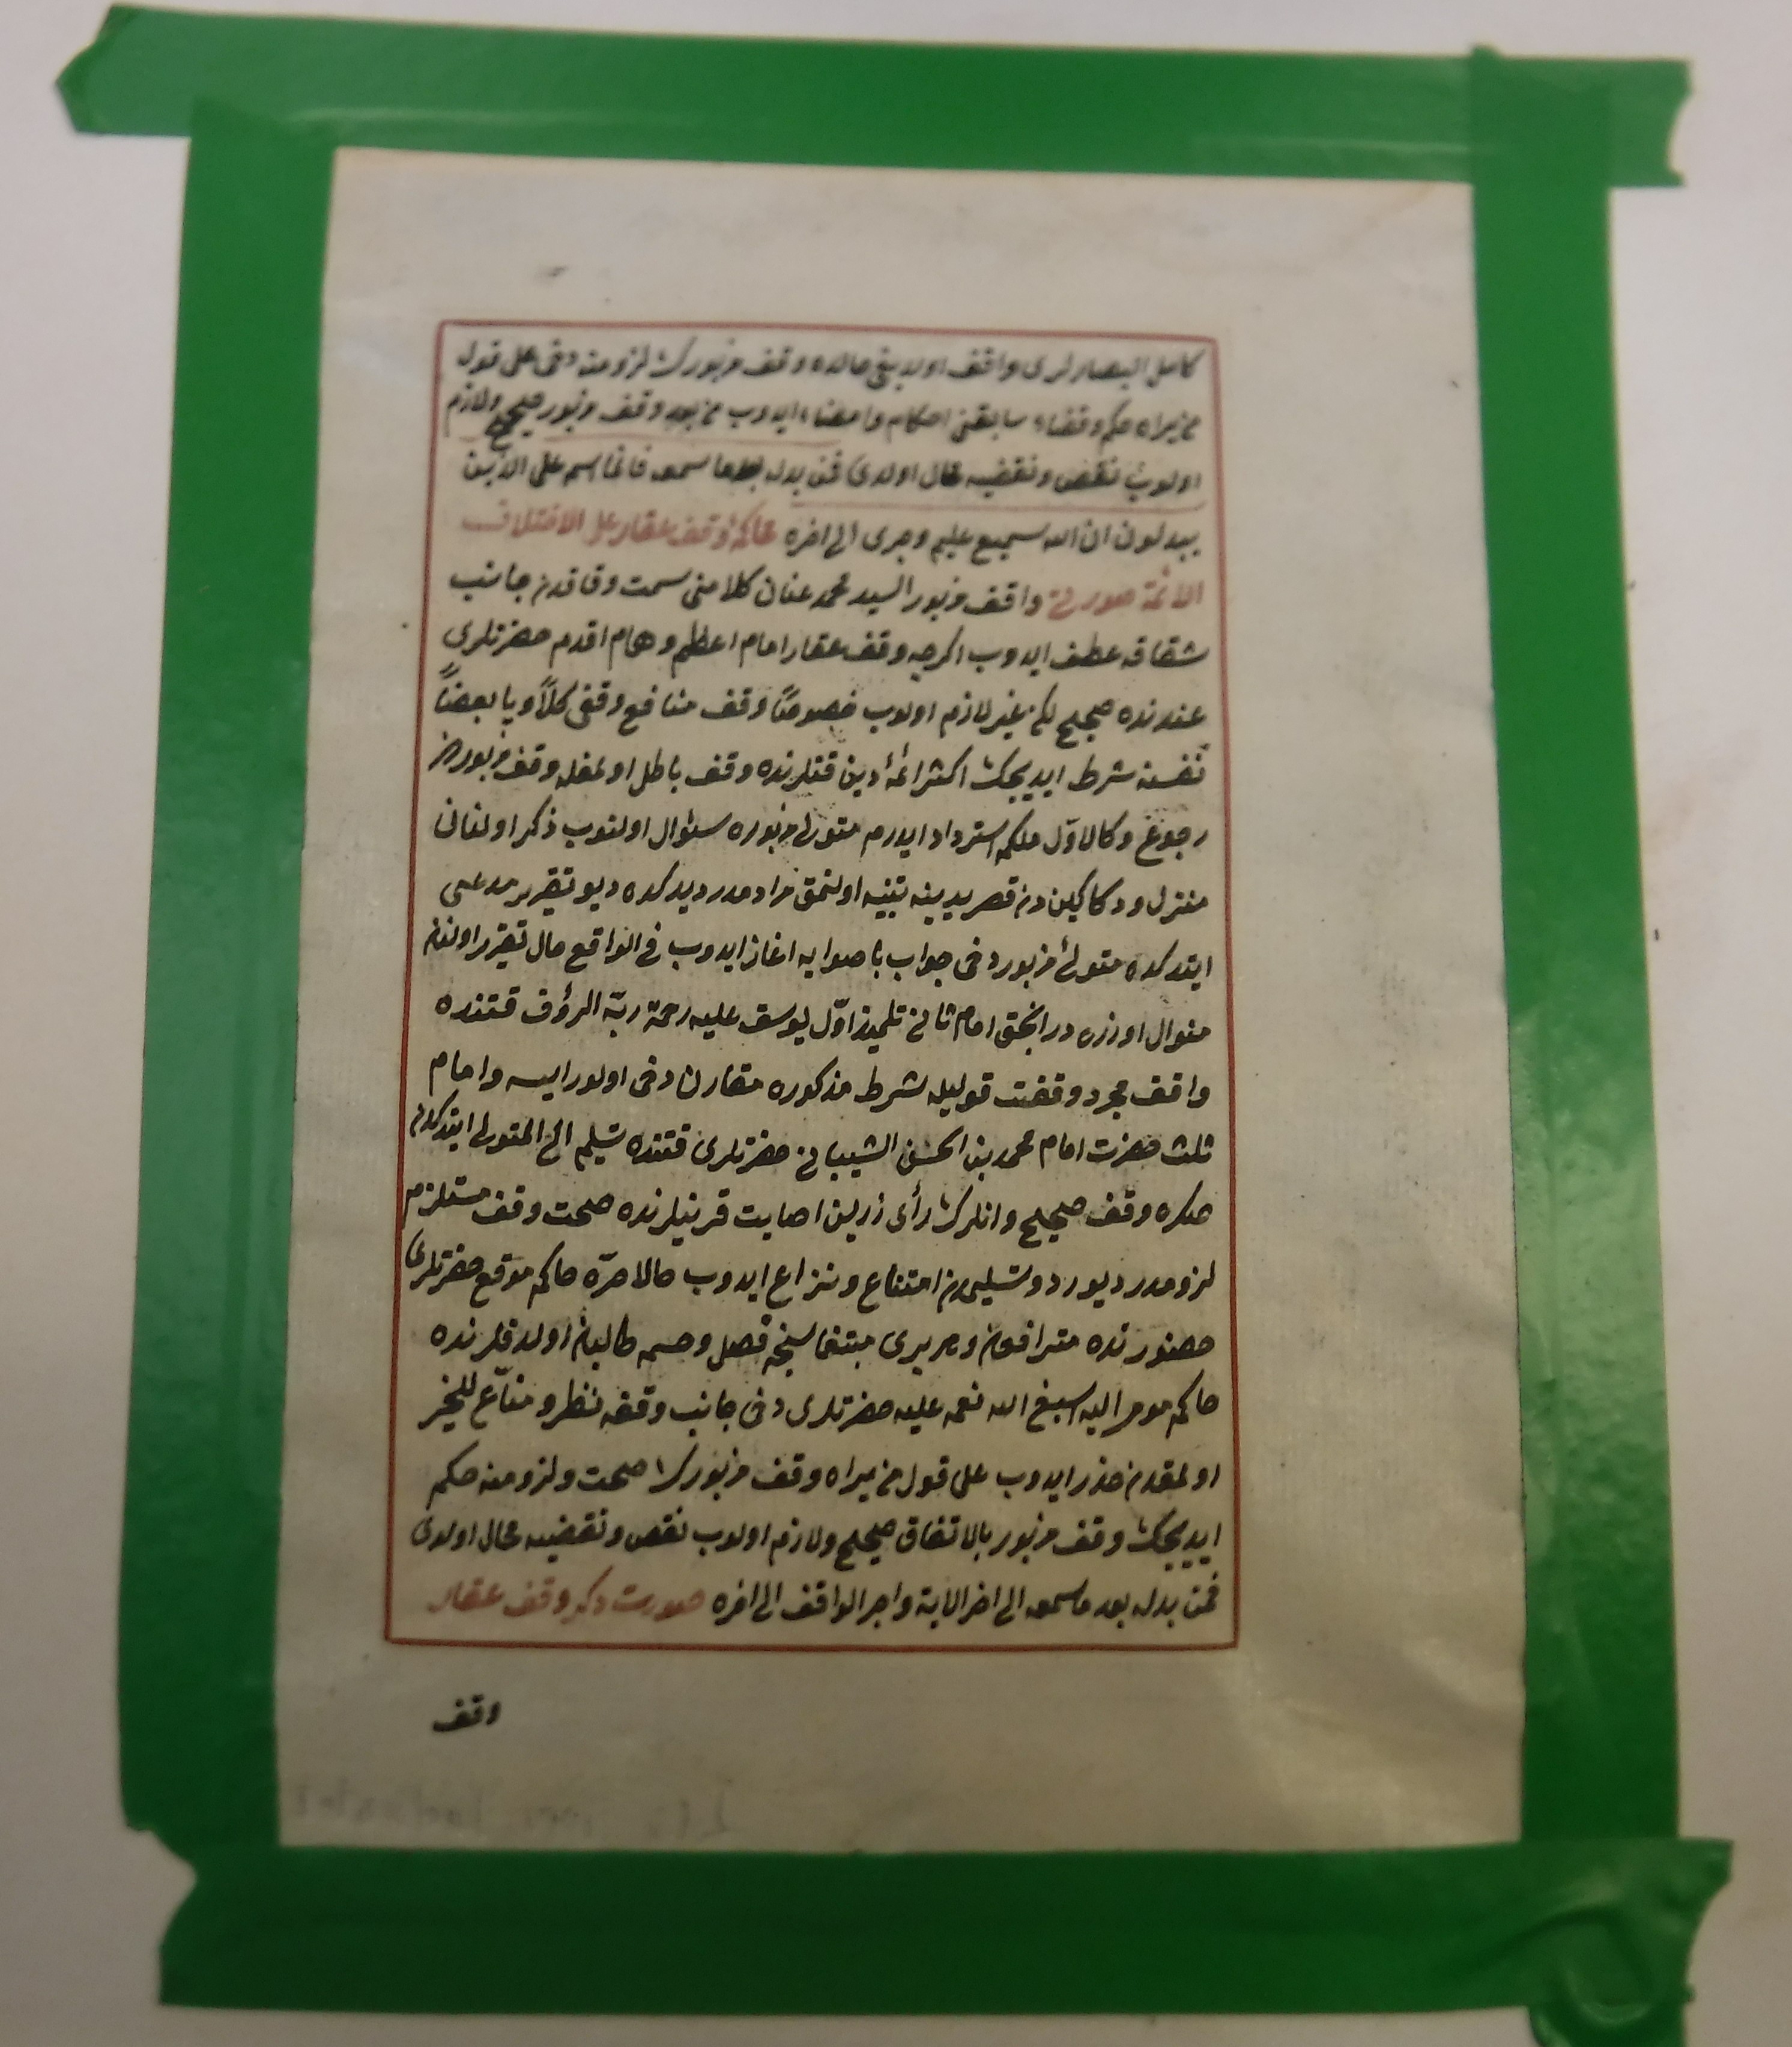 كامل البصار لرى واقف اولديغى حالده وقف مزبورك لزومنه دخى على قول
من يراه حكم وقضاء سابقنى احكام وامضاء ايدوب من بعد وقف مزبور صحيح ولازم
اولوب نقض ونقضيه محال اولدى فمن بدله بعدما سمعه فانما اثمه على الذين
يبدلونه ان الله سميع عليم وجرى الى اخره محاكمه وقف عقار على الاختلاف
الائمة صورتى واقف مزبور السيد محمد عنان كلامنى سمت وفاقدن جانب
شقاقه عطف ايدوب اكرجه وقف عقار امام اعظم وهمام اقدم حضرتلرى
عندنده صحيح لكن غير لازم اولوب خصوصًا وقف منافع وقفى كلاً ويا بعضاً
نفسنه شرط ايديجك اكثر ائمۀ دين قتلرنده وقف باطل اولمغله وقف مزبوردن
رجوع وكالاوّل ملكمه استرداد ايدرم متولى مزبوره سئوال اولنوب ذكر اولنان
منزل ودكاكيندن قصر يدينه تنبيه اولنمق مرادمدر ديدكده ديو تقرير مدعى
ايتدكده متولئ مزبور دخى جواب با صوابه اغاز ايدوب فى الواقع حال تقرير اولنان
منوال اوزره در انجق امام ثانى تلميذ اوّل يوسف عليه رحمة ربّه الرؤف قتنده
واقف مجرد وقفت قوليله شرط مذكوره مقارن دخى اولور ايسه وامام
ثلث حضرت امام محمد بن الحسن الشيبانى حضرتلرى قتنده تسليم الى المتولى ايتدكدن
صكره وقف صحيح وانلرك رأى زرين اصابت قرينلرنده صحت وقف مستلزم
لزومدر ديو رد وتسليمدن امتناع ونزاع ايدوب حالا حرّه حاكم موقع حضرتلرى
حضورنده مترافعان وهر برى مبتغاسنجه فصل وحسمه طالبان اولدقلرنده
حاكم مومى اليه اسبغ الله نعمه عليه حضرتلرى دخى جانب وقفه نظر ومنّاع للخير
اولمقدن حذر ايدوب على قول من يراه وقف مزبورك صحت ولزومنه حكم
ايديجك وقف مزبور بالاتفاق صحيح ولازم اولوب نقض ونقضيه محال اولدى
فمن بدله بعد ما سمعه الى اخر الاية واجر الواقف الى اخره صورت دكر وقف عقار
وقف